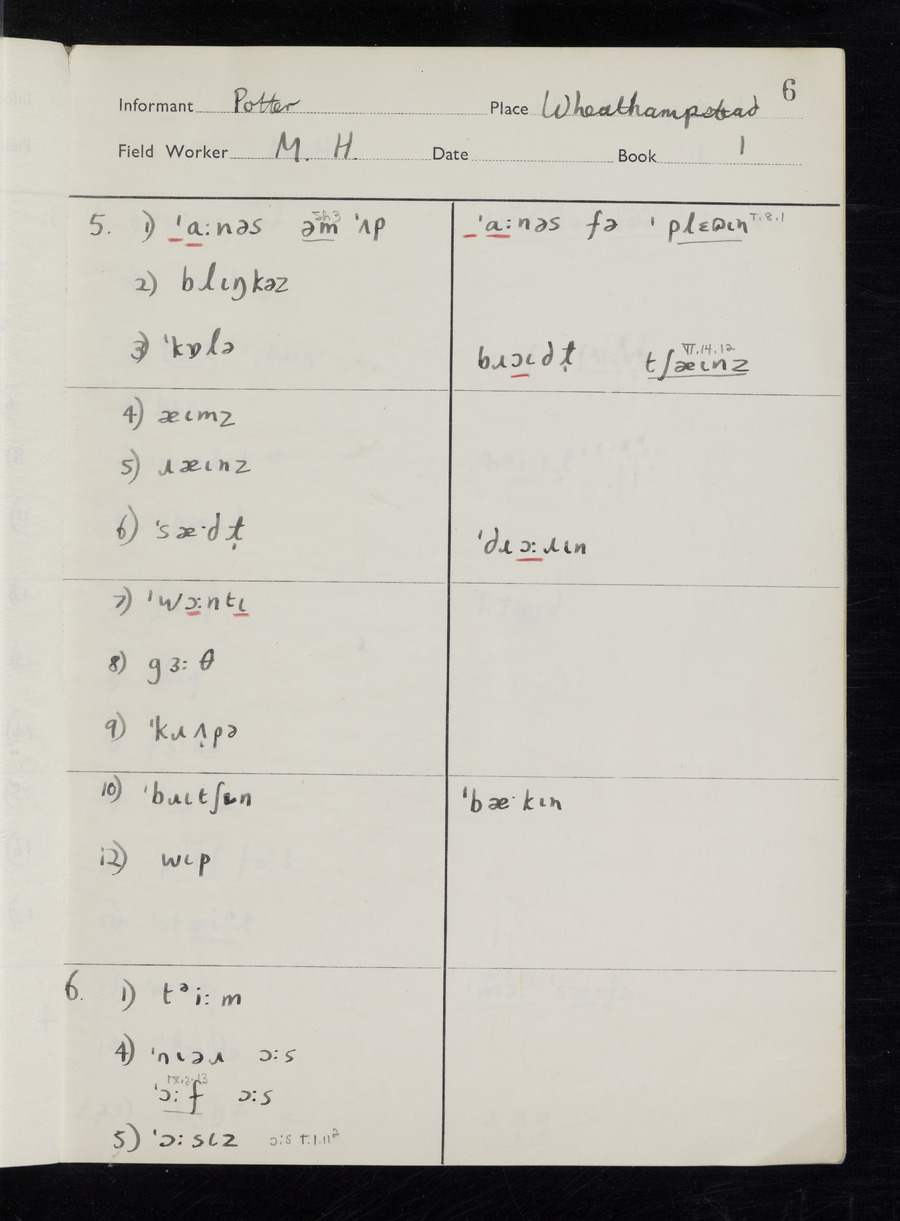 6
Informant Potter Place Wheathampstead
Field Worker M. H. Date Book 1
5. 1) ˈa:nəs əm ˈʌp ˈa:nəs fə ˈplɛʊɩn I.8.1
2) blɩŋkəz
3) ˈkɒlə bɹɔɩdḷ tʃæɩnz VI.14.12
4) æɩmz
5) ɹæɩnz
6) ˈsæ·dḷ ˈdɹɔ:ɹɩn
7) ˈwɔ:ntɩ
8) gɜ:θ
9) ˈkɹʌ̣pə
10) ˈbɹɩtʃɩn ˈbæ·kɩn
12) wɩp
6. 1) tᵊi:m
4) ˈnɩəɹ ɔ:s
IX.2.13
ˈɔ:f ɔ:s
5) ˈɔ:sɩz ɔ:s I.1.11²